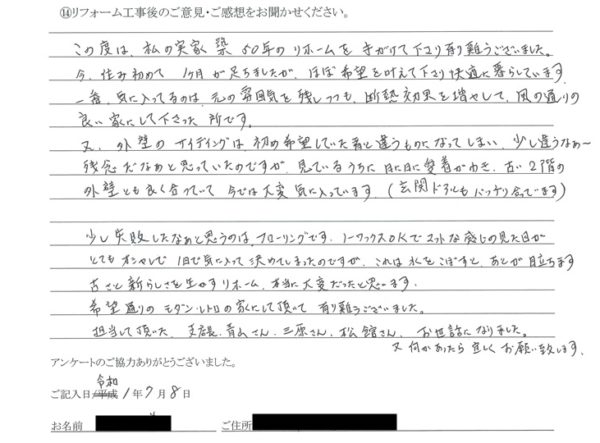 ⑭リフォーム工事後のご意見・ご感想をお聞かせください。
この度は、私の実家 築50年のリホームを手がけて下さり有り難うございました。
今、住み初めて 1ヶ月が足ちましたが、ほぼ希望を叶えて下さり快適に暮らしています。
一番、気に入ってるのは、元の雰囲気を残しつつも、断熱効果を増やして、風の通りの
良い家にして下さった所です。
又、外壁のサイディングは初め希望していた者と違うものになってしまい、少し違うなぁ〜
残念だなぁと思っていたのですが、見ているうちに日に日に愛着がわき、古い2階の
外壁とも良く合っていて 今では大変気に入っています。(玄関ドアルもバッチリ合ってます)
少し失敗したなぁと思うのは、フローリングです。ノーワックスOKでマットな感じの見た目が
とてもオシャレで 1日で気に入って決めてしまったのですが、これは水をこぼすと、あとが目立ちます
古さと新らしさを生かすリホーム、本当に大変だったと思います。
希望通りのモダン・レトロの家にして頂いて 有り難うございました。
担当して頂いた、支店長、青山さん、三原さん、松舘さん、お世話になりました。
又何かあったら宜しくお願い致します。
アンケートのご協力ありがとうございました。
令和
ご記入日 平成 1年7月8日
お名前 ご住所